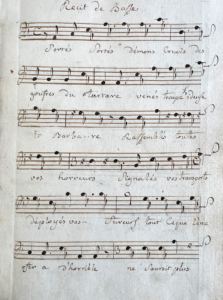 Recit de Basse
Sortés Sortés Démons Cruels des
gouffres du Tartare venés troupe
Barba-re Rassemblés toutes
vos horreurs Signalés vos transports
déployés vos fureurs tout ce que
a d'horrible ne Sauroit plus